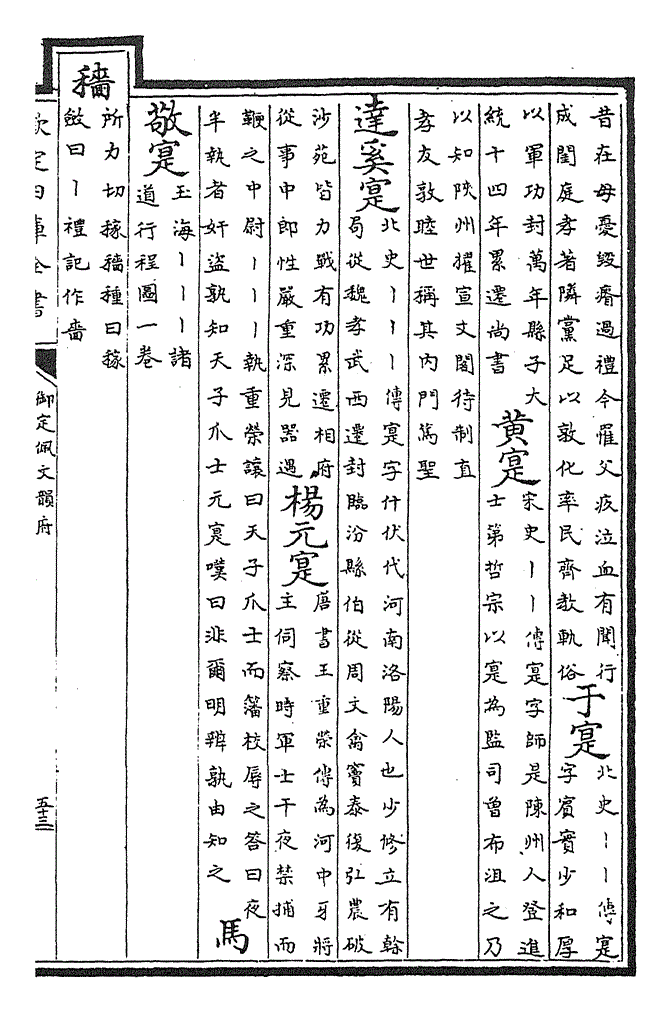 昔在母憂毀瘠過禮今罹父疚泣血有聞行
成閨庭孝著隣黨足以敦化率民齊教軌俗
于寔
北史丨丨傳寔
字賓實少和厚
以軍功封萬年縣子大
統十四年累遷尚書
黄寔
宋史丨丨傳寔字師是陳州人登進
士第哲宗以寔為監司曽布沮之乃
以知陜州擢宣文閣待制直
孝友敦睦世稱其内門篤聖
達奚寔
北史丨丨丨傳寔字什伏代河南洛陽人也少修立有幹
局從魏孝武西遷封臨汾縣伯從周文禽竇泰復弘農破
沙苑皆力戰有功累遷相府
從事中郎性嚴重深見器遇
楊元寔
唐書王重榮傳為河中牙將
主伺察時軍士干夜禁捕而
鞭之中尉丨丨丨執重榮讓曰天子爪士而籓校辱之答曰夜
半執者奸盜孰知天子爪士元寔嘆曰非爾明辨孰由知之
馬
敬寔
玉海丨丨丨諸
道行程圖一卷
穡
所力切稼穡種曰稼
斂曰丨禮記作嗇
欽定四庫全書
御定佩文韻府
五十三